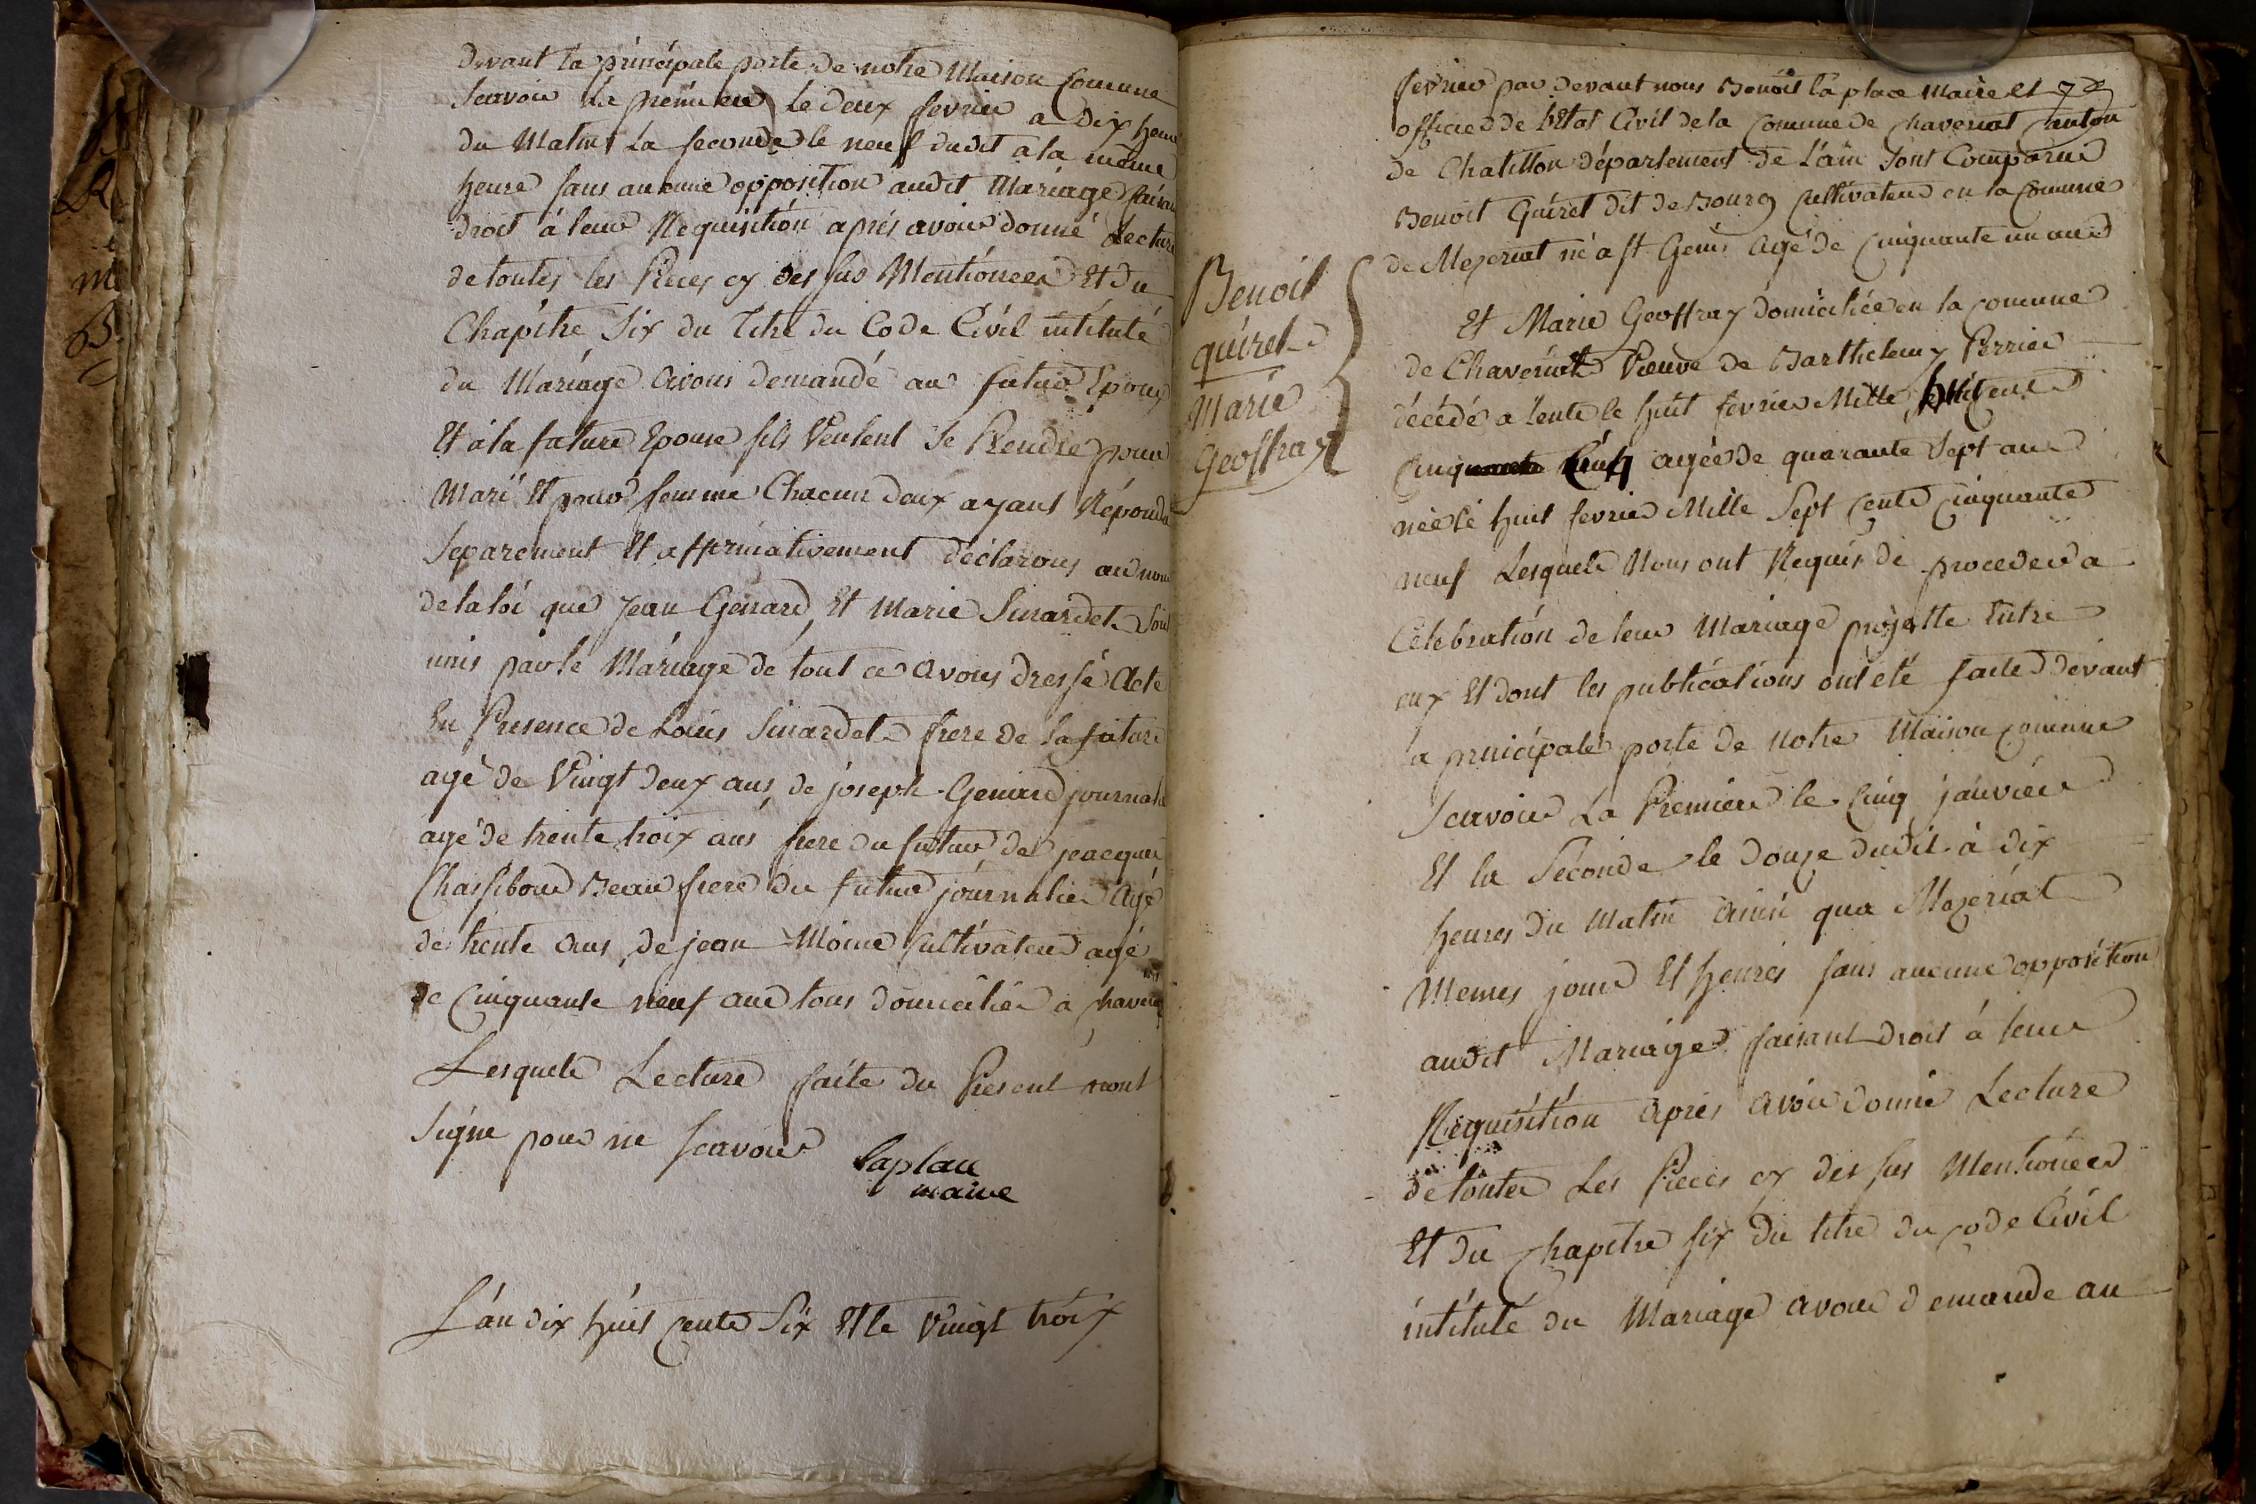 devant la principale porte de notre Maison Comune
Scavoir La premiere le deux fevrier a Dix heure
du Matin La seconde le neuf dudit a la même
heure sans aucune opposition audit Mariage faisant
droit à leur Requisition aprés avoir donné Lecture
de toutes les Pieces cy des sus Mentionees Et du
Chapitre Six du Titre du Code Civil intitulé
du Mariage avons demandé au futur Epoux
Et à la future Epouse sils Veulent se Prendre pour
Mari Et pour femme Chacun deux ayant Répondu
Separement Et affirmativement déclarons au nom
de la loi que Jean Genard Et Marie Sinardet sont
unis par le Mariage de tout ce avons dressé Acte
En Presence de Louis Sinardet frere de la future
agé de Vingt deux ans, de joseph Genard journalier
agé de trente troix ans frere du futur, de jeacques
Chassibout Beau frere du futur journalier Agé
de trente ans, de jean Moine Cultivateur agé
de Cinquante neuf ans tous domicilies a Chaveriat
Lesquels Lecture faite du Present nont
Signe pour ne scavoir Laplace
maire
L'an dix huit Cents Six Et le Vingt troix
fevrier par devant nous Benoit La place Maire et
officier de létat Civil de la Comune de Chaveriat Canton
de Chatillon département de L'ain sont Comparus
Benoit Guiret dit de Bourg Cultivateur en la Comune
de Mezeriat né a st Genis agé de Cinquante un ans
Benoit
quiret
Marie
Geoffray
Et Marie Geoffray domiciliée en la comune
de Chaveriat Veuve de Barthelemy Perrier
décédé a Lente le huit fevrier Mille huit cents
Cinq agée de quarante Sept ans
née le huit fevrier Mille Sept Cents Cinquante
neuf Lesquels Nous ont Requis de proceder a
Célebration de leur Mariage projette Entre
eux Et dont les publications ont été faites devant
la principale porte de notre Maison comune
Scavoir La Premiere le Cinq janvier
Et la Seconde le douze dudit à dix
heures du Matin Ainsi qua Mezeriat
Memes jours Et heures sans aucune opposition
audit Mariage faisant Droit à leur
Requisition Aprés avoir donné Lecture
de toutes Les Pieces cy des sus Mentionées
Et du Chapitre six du titre du Code Civil
intitulé du Mariage avons demande au